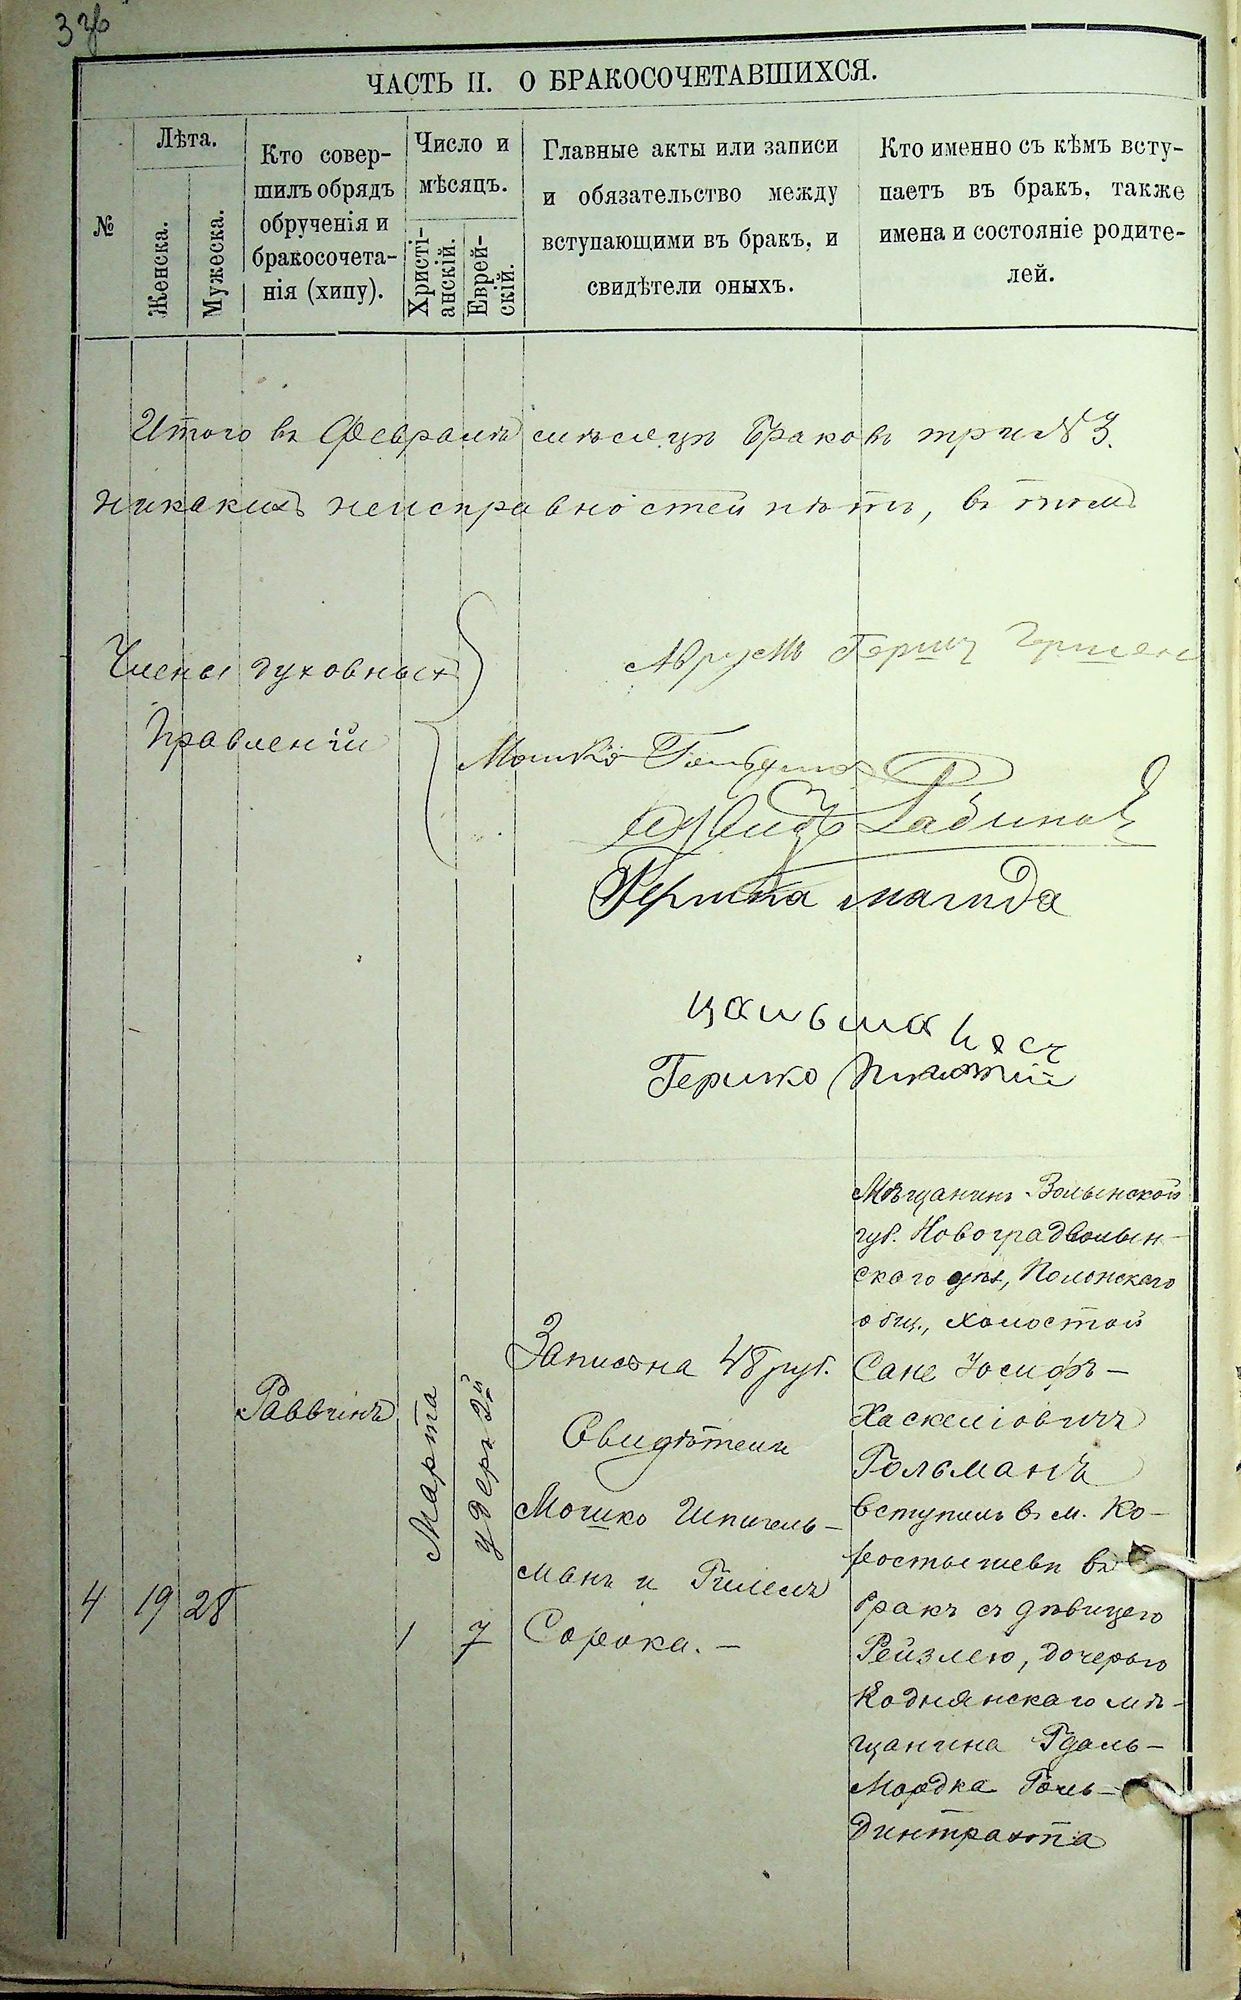 ЧАСТЬ II. О БРАКОСОЧЕТАВШИХСЯ.
№
Лѣта.
Женска.
Мужеска.
Кто совер-
шилъ обрядъ
обрученія и
бракосочета-
нія (хипу).
Число и
мѣсяцъ.
Христі-
анскій.
Еврей-
скій.
Главные акты или записи
и обязательство между
вступающими въ бракъ, и
свидѣтели оныхъ.
Кто именно съ кѣмъ всту-
паетъ въ бракъ, также
имена и состояніе родите-
лей.
Итого въ Февралѣ мѣсяцѣ браковъ три № 3.
никакихъ неисправностей нѣтъ, въ томъ
Члены духовныхъ
Правленій
Аврумъ Гершъ
Мошко
Рабинов
Гершка магида
Гершко
4
19
28
Раввинъ
Марта
1
удеръ 2й
7
Записана 48 руб.
Свидѣтели
Мошко Шпигель-
манъ и Гилель
Сорока. —
Мѣщанинъ Волынской
губ. Новоградволын-
скаго уѣз, Полонскаго
общ., холостой
Сане Іосифъ —
Хаскеліовичъ
Гольманъ
вступилъ въ м. Ко-
ростышевѣ въ
бракъ съ дѣвицею
Рейзлею, дочерью
Коднянскаго мѣ-
щанина Гдаль-
Мордка Голь-
динтрахта